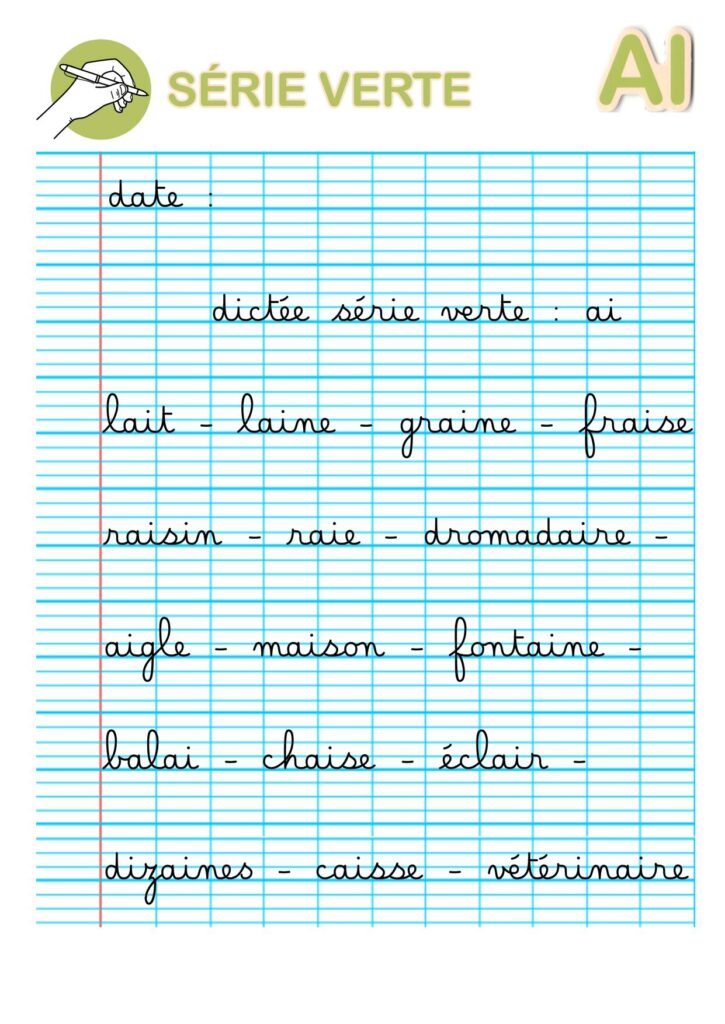 SÉRIE VERTE
AI
date :
dictée série verte : ai
lait - laine - graine - fraise
raisin - raie - dromadaire -
aigle - maison - fontaine -
balai - chaise - éclair -
dizaines - caisse - vétérinaire